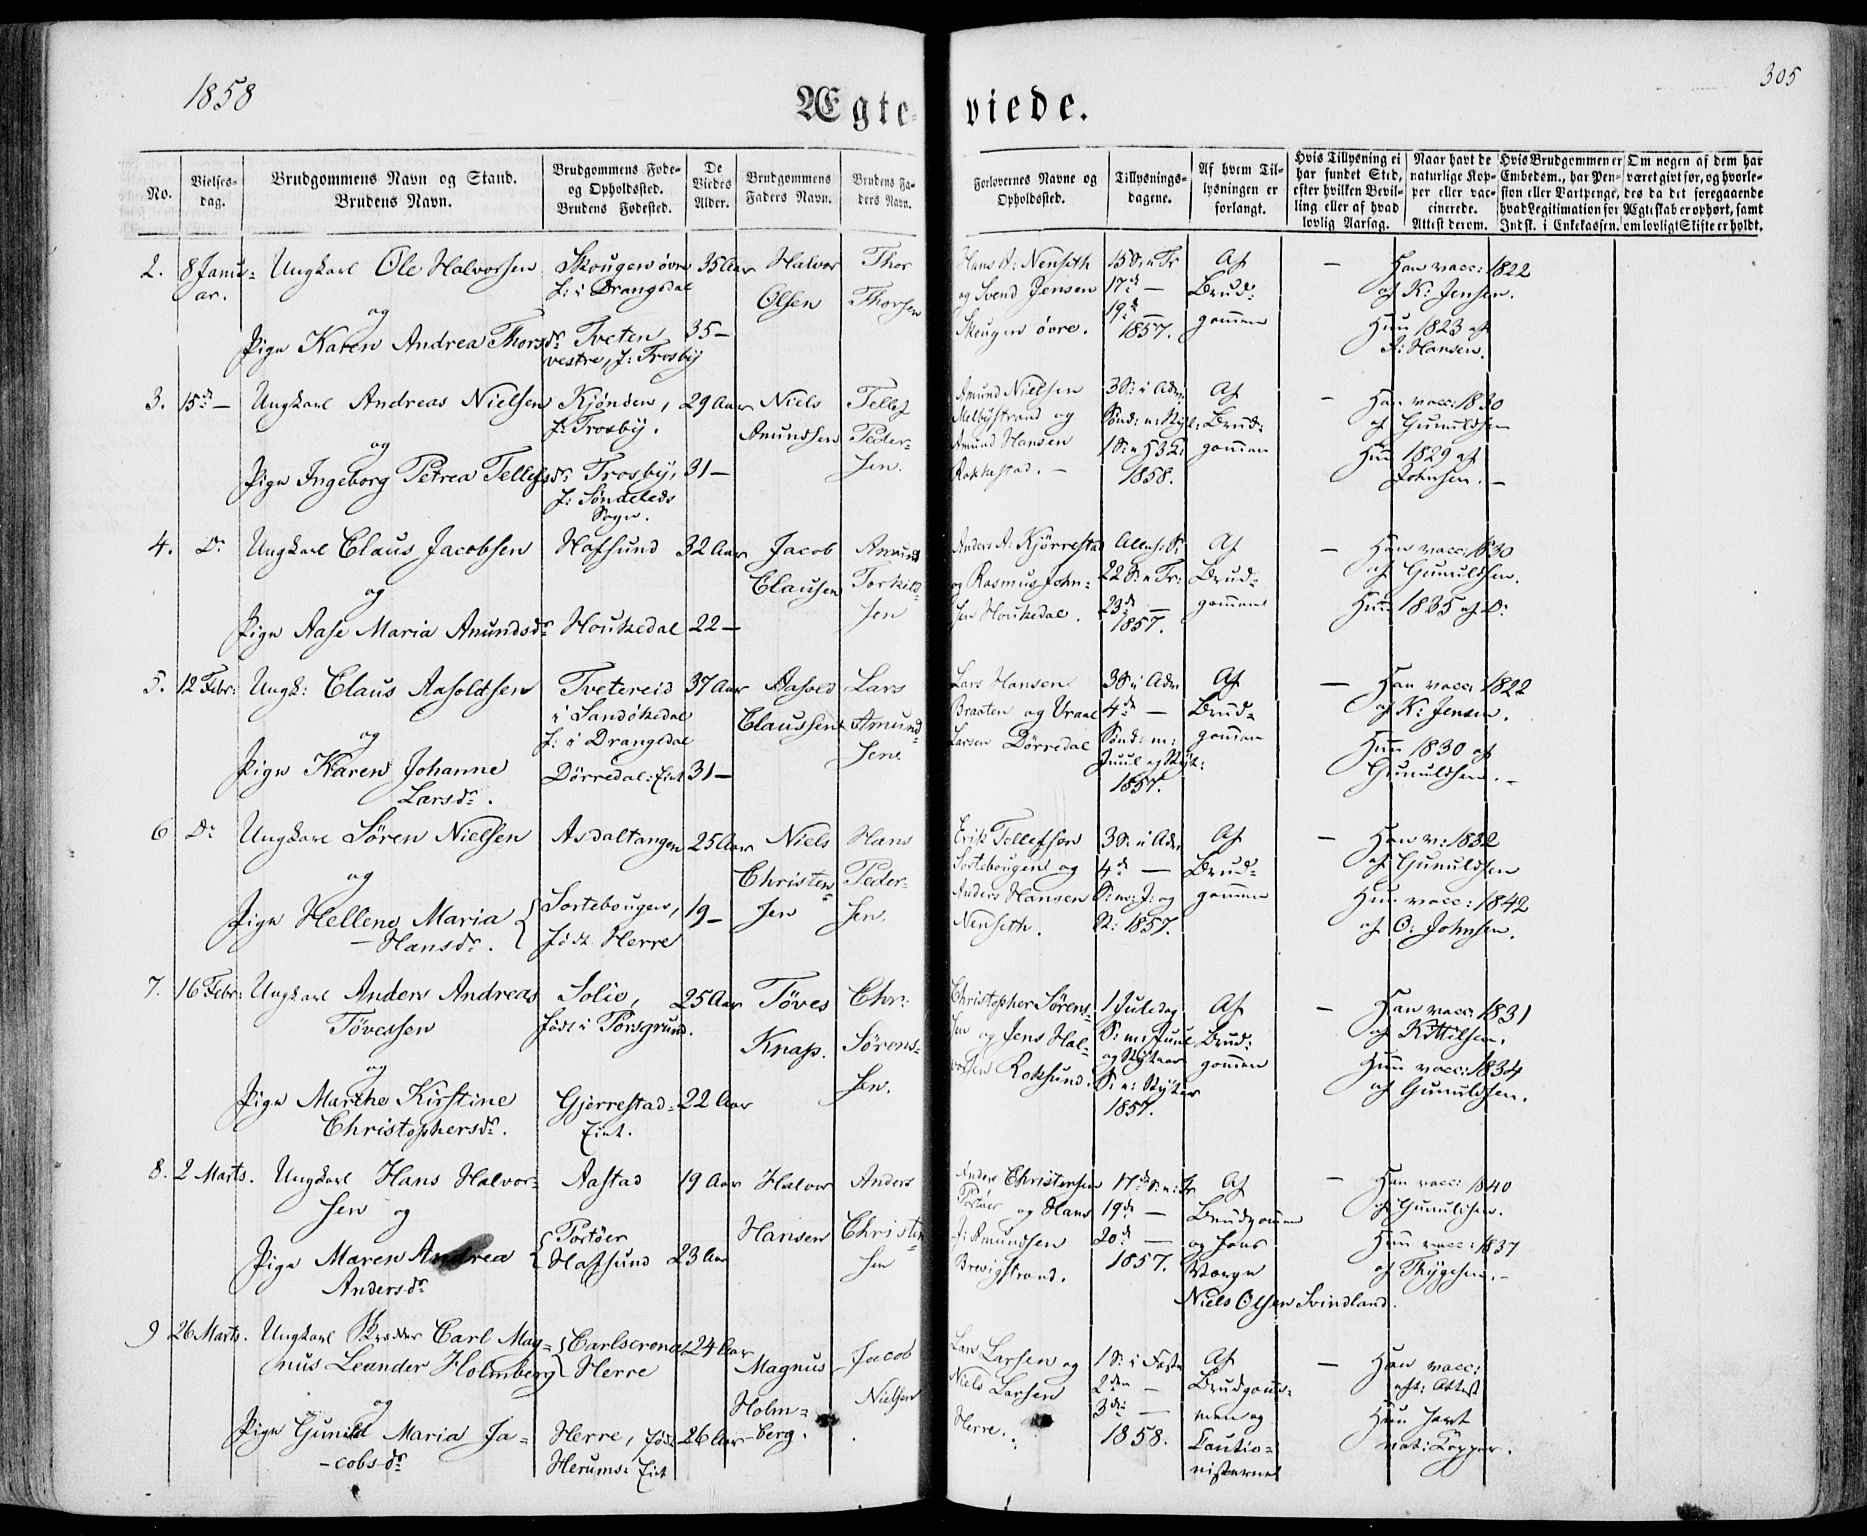 1858
305
Ægteviede.
No.
Vielses-
dag.
Brudgommens Navn og Stand.
Brudens Navn.
Brudgommens Føde-
og Opholdssted.
Brudens Fødested.
De
Viedes
Alder.
Brudgommens
Faders Navn.
Brudens Fa-
ders Navn.
Forlovernes Navne og
Opholdssted.
Tillysnings-
dagene.
Af hvem Til-
lysningen er
forlangt.
Hvis Tillysning ei
har fundet Sted,
efter hvilken Bevil-
ling eller af hvad
lovlig Aarsag.
Naar havt de
naturlige Kop-
per eller vac-
cinerede.
Attest derom.
Hvis Brudgommen er
Embedsm., har Pen-
sion eller Vartpenge,
hvad Legitimation for
Indsk. i Enkekassen.
Om nogen af dem har
været givt før, og hvorle-
des da det foregaaende
Ægteskab er ophørt, samt
om lovligt Skifte er holdt.
2. 8 Janu-
ar.
Ungkarl Ole Halvorsen
og
Pige Karen Andrea Thorsdr
Skougen øvre
f: i Drangedal
Tveten
vestre, f: Trosby
35 Aar
35 —
Halvor
Olsen
Thor
Thorsen
Hans A: Nenseth
og Svend Jensen
Skougen øvre.
15 S: e Tr
17de —
19de —
1857.
Af
Brud-
gommen
—
Han vacc: 1822
af K: Jensen.
Hun 1823 af
J: Hansen.
3. 15de —
Ungkarl Andreas Nielsen
og
Pige Ingeborg Petrea Tellefsdr
Kjönden,
f: Trosby.
Trosby,
f: Søndeleds
Sogn.
29 Aar
31 —
Niels
Amundsen
Tellef
Peder-
sen.
Amund Nielsen
Melbystrand og
Amund Hansen
Rakkestad. —
3 S: i Adv:
Sønd: e: Nyt:
1 S: e H 3 K:
1858.
Af
Brud-
gommen
—
Han vacc: 1830
af Gunuldsen
Hun 1829 af
Johnsen. —
4. Do
Ungkarl Claus Jacobsen
og
Pige Aase Maria Amundsdr
Hafsund
Houkedal
32 Aar
22 —
Jacob
Clausen
Amund
Torkild-
sen
Anders A: Kjörrestad
og Rasmus John-
sen Houkedal.
Alleh: S:
22 S: e Tr:
23de —
1857.
Af
Brud-
gommen
—
Han vacc: 1830
af Gunuldsen.
Hun 1835 af Do
5. 12 Febr:
Ungk: Claus Aasoldsen
og
Pige Karen Johanne
Larsdr.
Tvetereid
i Sandøkedal
f: i Drangedal
Dörredal: Eiet
37 Aar
31 —
Aasold
Claussen
Lars
Amund-
sen.
Lars Hansen
Braaten og Vraal
Larsen Dörredal
3 S: i Adv
4de —
Sönd: m:
Juul og Nyt:
1857.
Af
Brud-
gommen
—
Han vacc: 1822
af K: Jensen.
Hun 1830 af
Gunuldsen. —
6 Do
Ungkarl Sören Nielsen
og
Pige Hellene Maria
— Hansdr.
Asdaltangen
Sortebougen,
født Herre
25 Aar
19 —
Niels
Christen-
sen
Hans
Peder-
sen.
Erik Tellefsen
Sortebougen og
Anders Hansen
Nenseth.
3 S: i Adv
4de —
S: m: J: og
N: 1857.
Af
Brud-
gommen
—
Han v: 1832
af Gunuldsen
Hun vacc: 1842
af O: Johnsen.
7. 16 Febr:
Ungkarl Anders Andreas
Tövessen
og
Pige Marthe Kirstine
Christophersdr.
Solie,
født i Porsgrund.
Gjerrestad-
Eiet.
25 Aar
22 Aar
Töves
Knap.
Chr:
Sörens-
sen.
Christopher Sörens-
sen og Jens Hal-
vorsen Roksund.
1 Juledag
S: m: Juul
og Nytaar
S: e: Nytaar
1857.
Af
Brud-
gommen
—
Han vacc: 1831
af Kittilsen.
Hun vacc: 1834
af Gunuldsen.
8. 2 Marts.
Ungkarl Hans Halvor-
sen og
Pige Maren Andrea
Andersdr
Aastad
Portöer
Hafsund
19 Aar
23 Aar
Halvor
Hansen
Anders
Christen-
sen
Anders Christensen
Portöer og Hans
J: Amundsen
Brevigstrand.
17de S: e: Tr
19de —
20de —
1857.
Af
Brudgommen
og hans
Værge
Niels Olsen Svindland.
—
Han vacc: 1840
af Gunuldsen.
Hun vacc: 1837
af Thygesen. —
9 26 Marts.
Ungkarl Skrædder Carl Mag-
nus Leander Holmberg
og
Pige Gunild Maria Ja-
cobsdr
Carlscrona
Herre
Herre, født
Herums: Eiet
24 Aar
26 Aar
Magnus
Holm-
berg.
Jacob
Nielsen
Lars Larsen og
Niels Larsen
Herre.
1 S: i Faste
2den —
3die —
1858.
Af
Brudgom-
men og
Cautio-
nisterne
—
Han vacc:
eft: Attest
Hun havt
nat: Kopper.